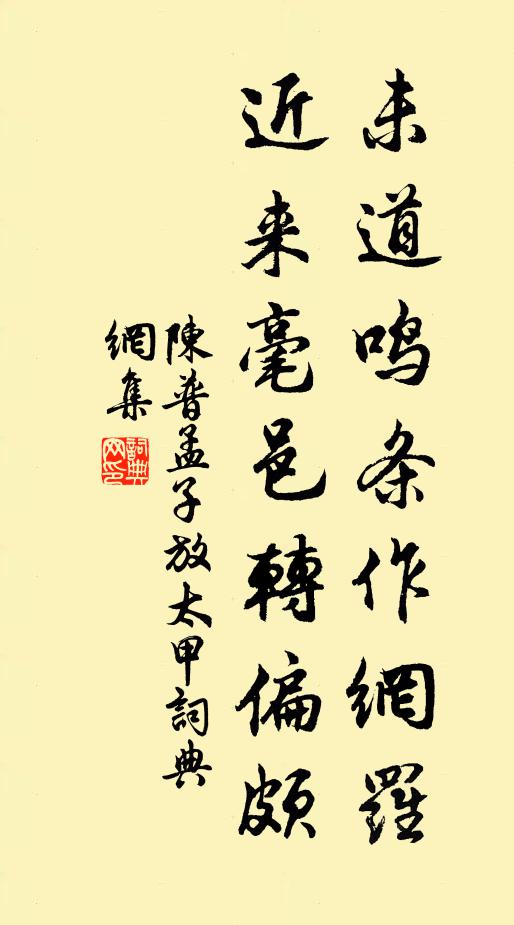 未道鸣条作網羅
近来毫邑轉偏頗
陳普孟子放太甲詞典
網集
詞典網印